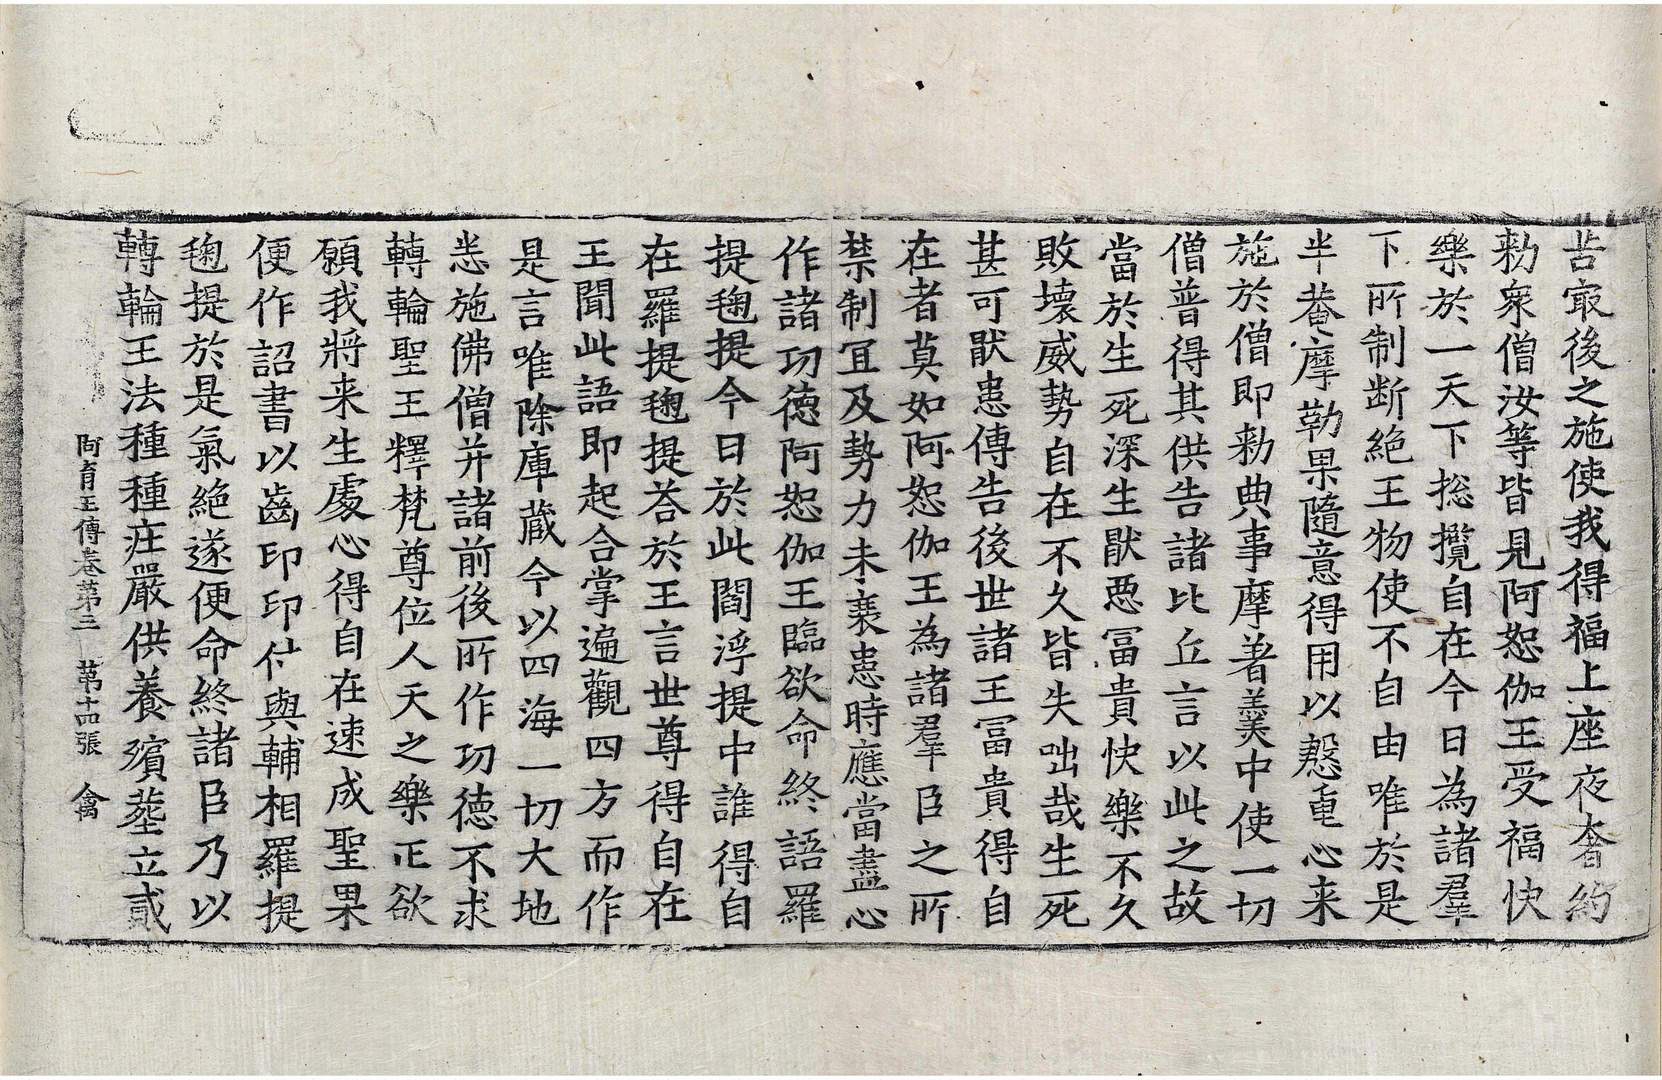 苦㝡後之施使我得福上座夜奢約
勑衆僧汝等皆見阿恕伽王受福快
樂於一天下捴攬自在今日為諸羣
下所制断絶王物使不自由唯於是
半菴摩勒果隨意得用以慇重心来
施於僧即勑典事摩著羹中使一切
僧普得其供告諸比丘言以此之故
當於生死深生猒惡冨貴快樂不久
敗壊威勢自在不久皆失咄哉生死
甚可猒患傳告後世諸王冨貴得自
在者莫如阿恕伽王為諸羣臣之所
禁制冝及勢力未衰恚時應當盡心
作諸功德阿恕伽王臨欲命終語羅
提毱提今日於此閻浮提中誰得自
在羅提毱提荅於王言世尊得自在
王聞此語即起合掌遍觀四方而作
是言唯除庫藏今以四海一切大地
恙施佛僧并諸前後所作功德不求
轉輪聖王釋梵尊位人天之樂正欲
願我將来生處心得自在速成聖果
便作詔書以齒印印付與輔相羅提
毱提於是氣絶遂便命終諸臣乃以
轉輪王法種種莊嚴供養殯塟立貳
阿育王傳卷第三　第十四張　禽